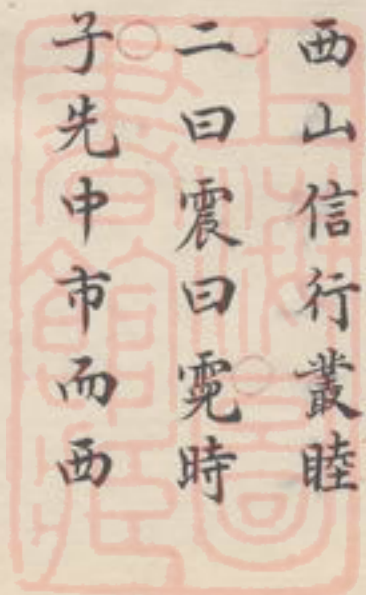 西山信行叢睦
二曰震曰霓時
子先申市而西